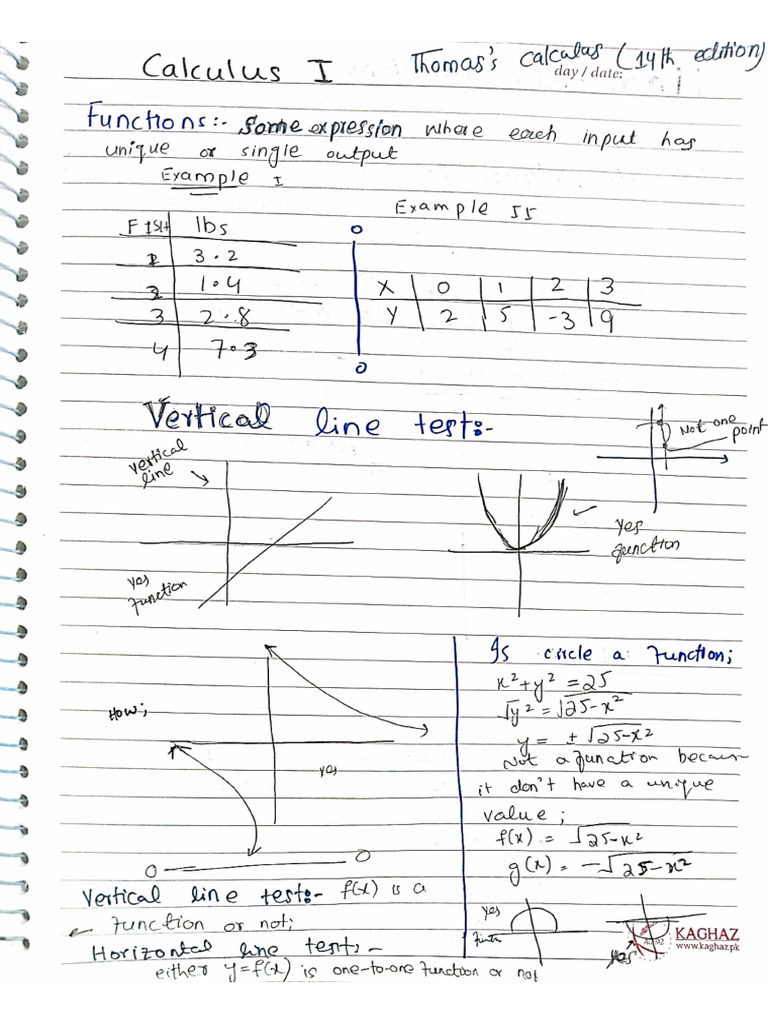 Calculus I
Thomas's calculas (14th edition)
day / date:
Functions:- Some expression where each input has
unique or single output
Example I
FISH lbs
1 3.2
2 1.4
3 2.8
4 7.3
Example II
X 0 1 2 3
Y 2 5 -3 9
Vertical line test:-
Not one
point
vertical
line
yes
Function
yes
function
How;
yes
Is circle a Function;
x²+y² = 25
√y² = √25-x²
y = ±√25-x²
Not a function because
it don't have a unique
value;
f(x) = √25-x²
g(x) = -√25-x²
yes
yes
Vertical line test:- f(x) is a
Function or not;
Horizontal line test:-
either y=f(x) is one-to-one Function or not
KAGHAZ
www.kaghaz.pk